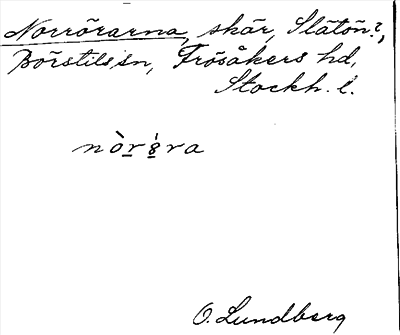 Norrörarna, skär, Slätön?,
Börstils sn, Frösåkers hd,
Stockh. l.
nò̱rö̱́ra
O. Lundberg